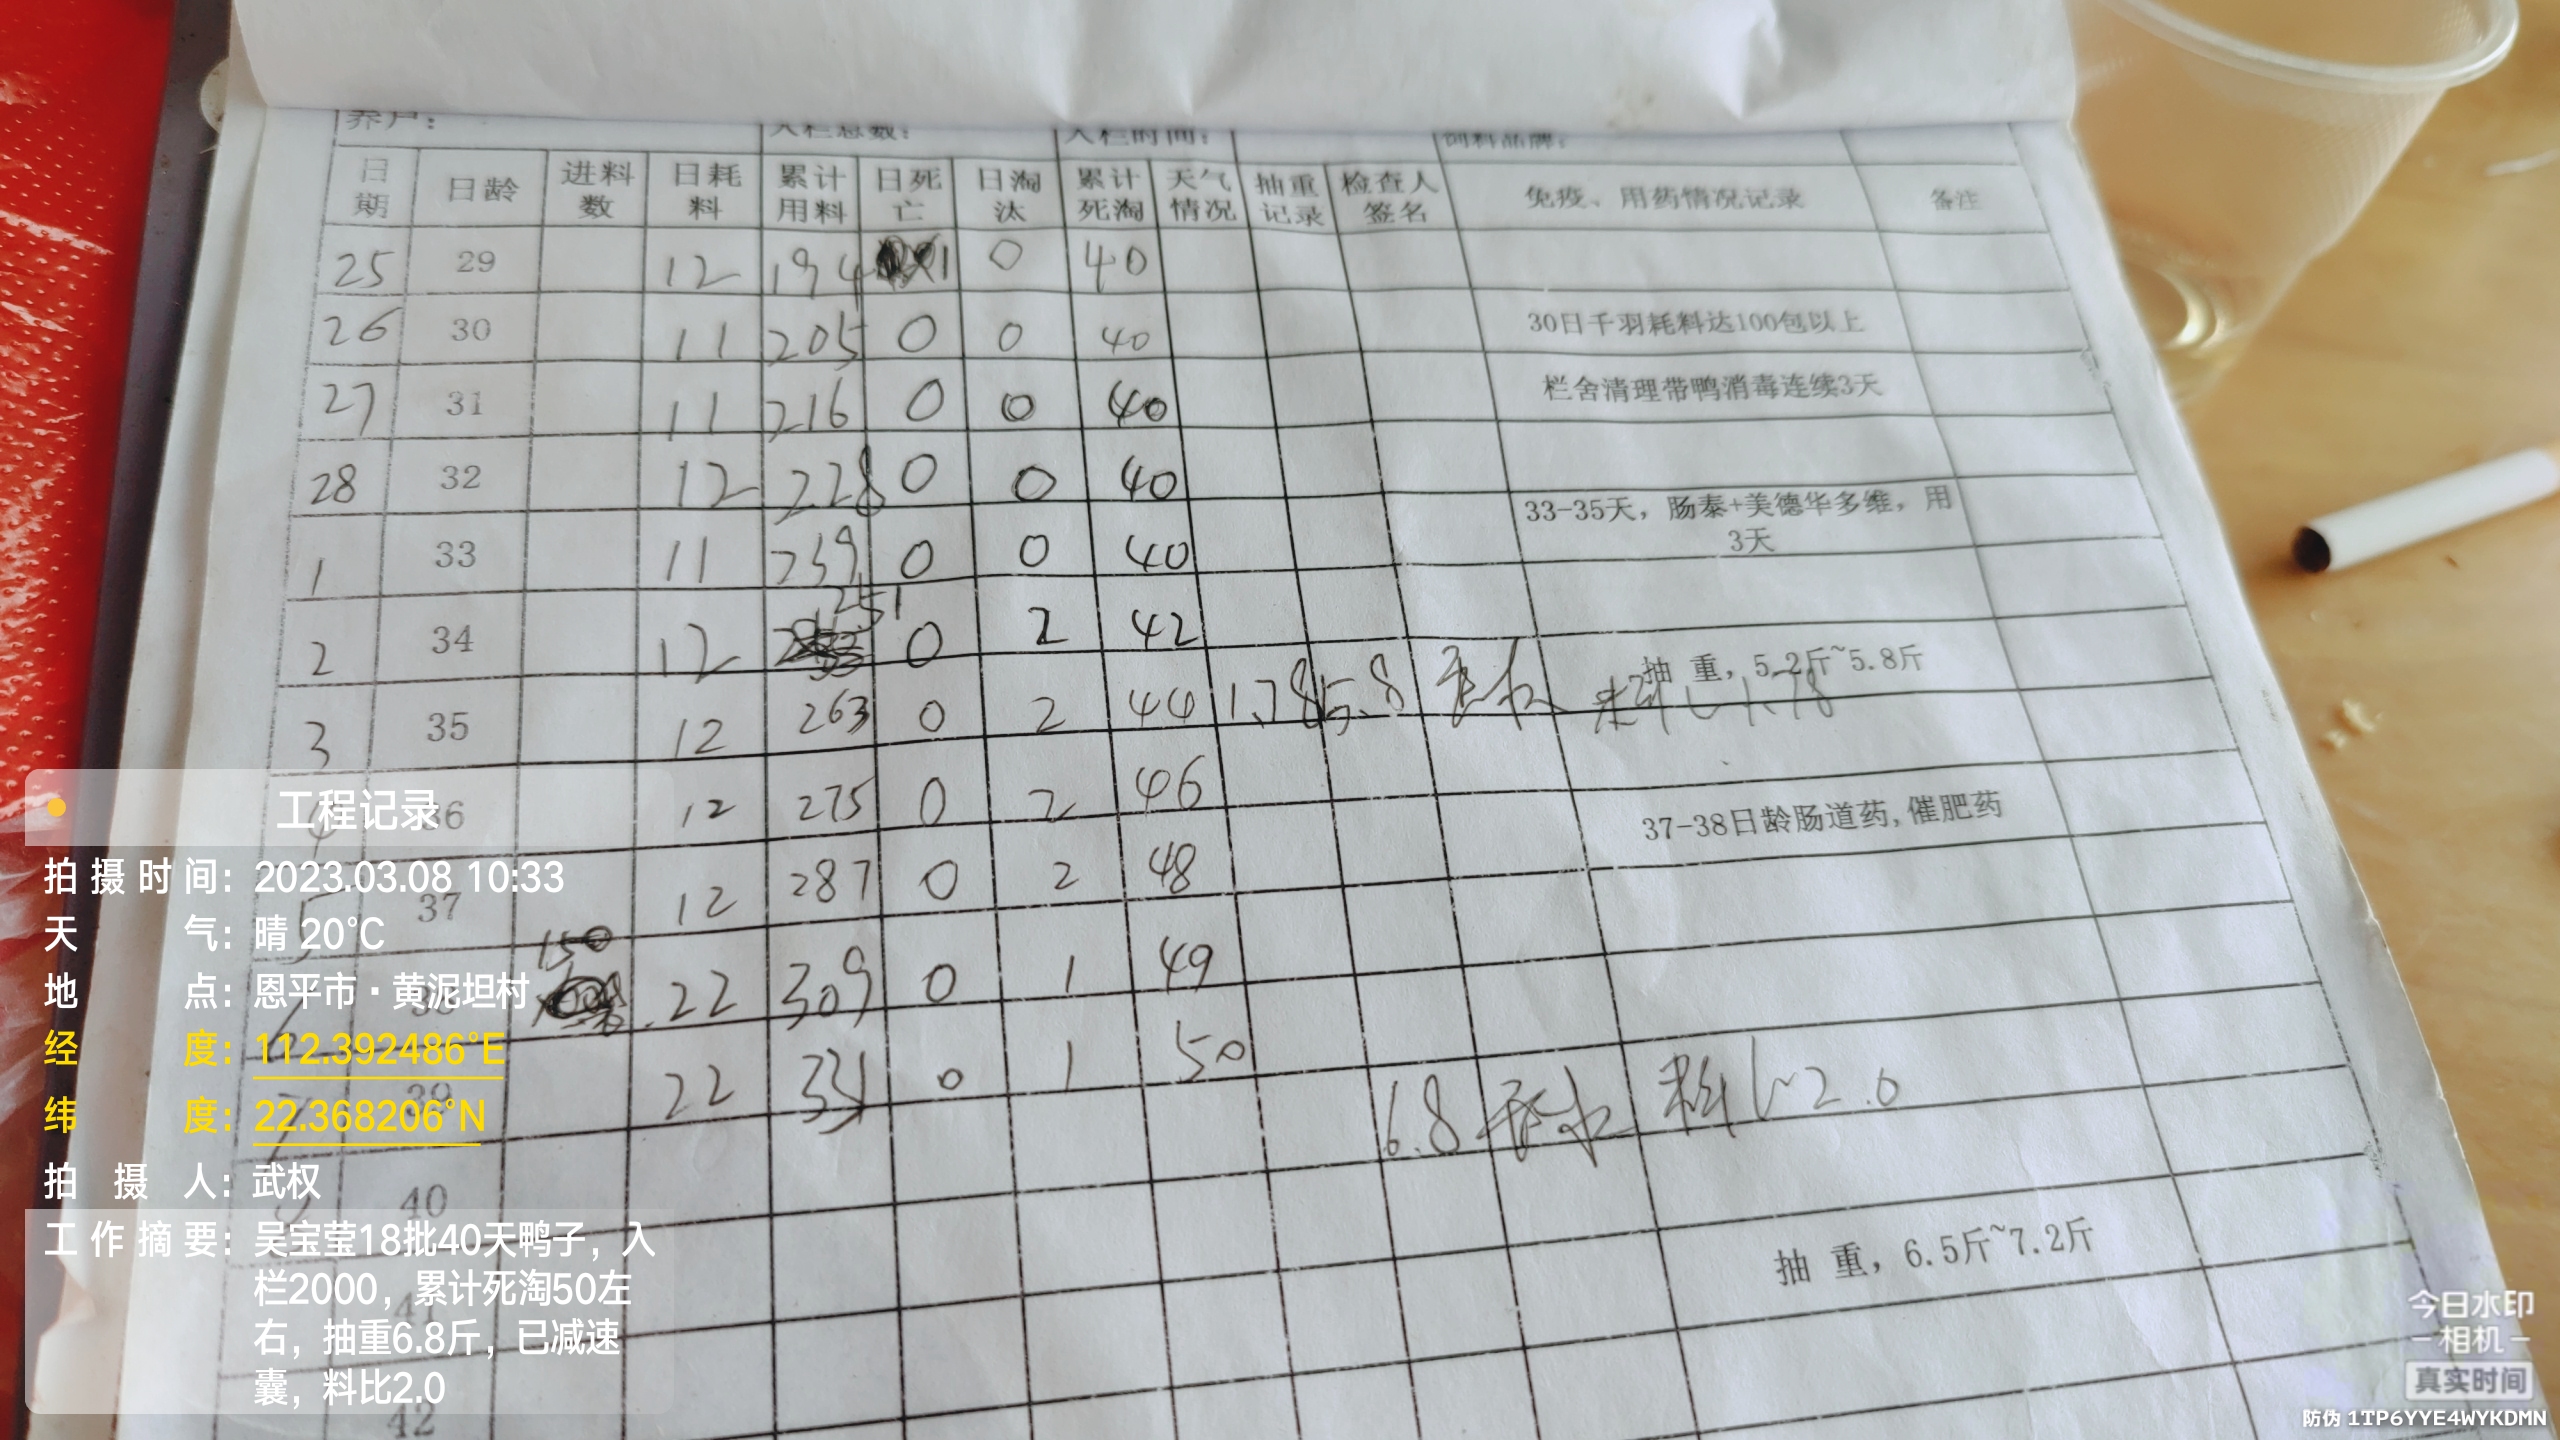 养户： 入栏总数： 入栏时间： 饲料品牌：
日期 日龄 进料数 日耗料 累计用料 日死亡 日淘汰 累计死淘 天气情况 抽重记录 检查人签名 免疫、用药情况记录 备注
25 29 12 194 1 0 40
26 30 11 205 0 0 40 30日千羽耗料达100包以上
27 31 11 216 0 0 40 栏舍清理带鸭消毒连续3天
28 32 12 228 0 0 40
1 33 11 239 0 0 40 33-35天，肠泰+美德华多维，用3天
2 34 12 251 0 2 42
3 35 12 263 0 2 44 1.78 5.8 抽 重，5.2斤~5.8斤
料比1.78
4 36 12 275 0 2 46
5 37 12 287 0 2 48 37-38日龄肠道药,催肥药
6 38 150 22 309 0 1 49
7 39 22 331 0 1 50 6.8 料比2.0
40
41 抽 重，6.5斤~7.2斤
42
工程记录
拍摄时间：2023.03.08 10:33
天气：晴 20℃
地点：恩平市·黄泥坦村
经度：112.392486°E
纬度：22.368206°N
拍摄人：武权
工作摘要：吴宝莹18批40天鸭子，入
栏2000，累计死淘50左
右，抽重6.8斤，已减速
囊，料比2.0
今日水印
相机
真实时间
防伪 1TP6YYE4WYKDMN